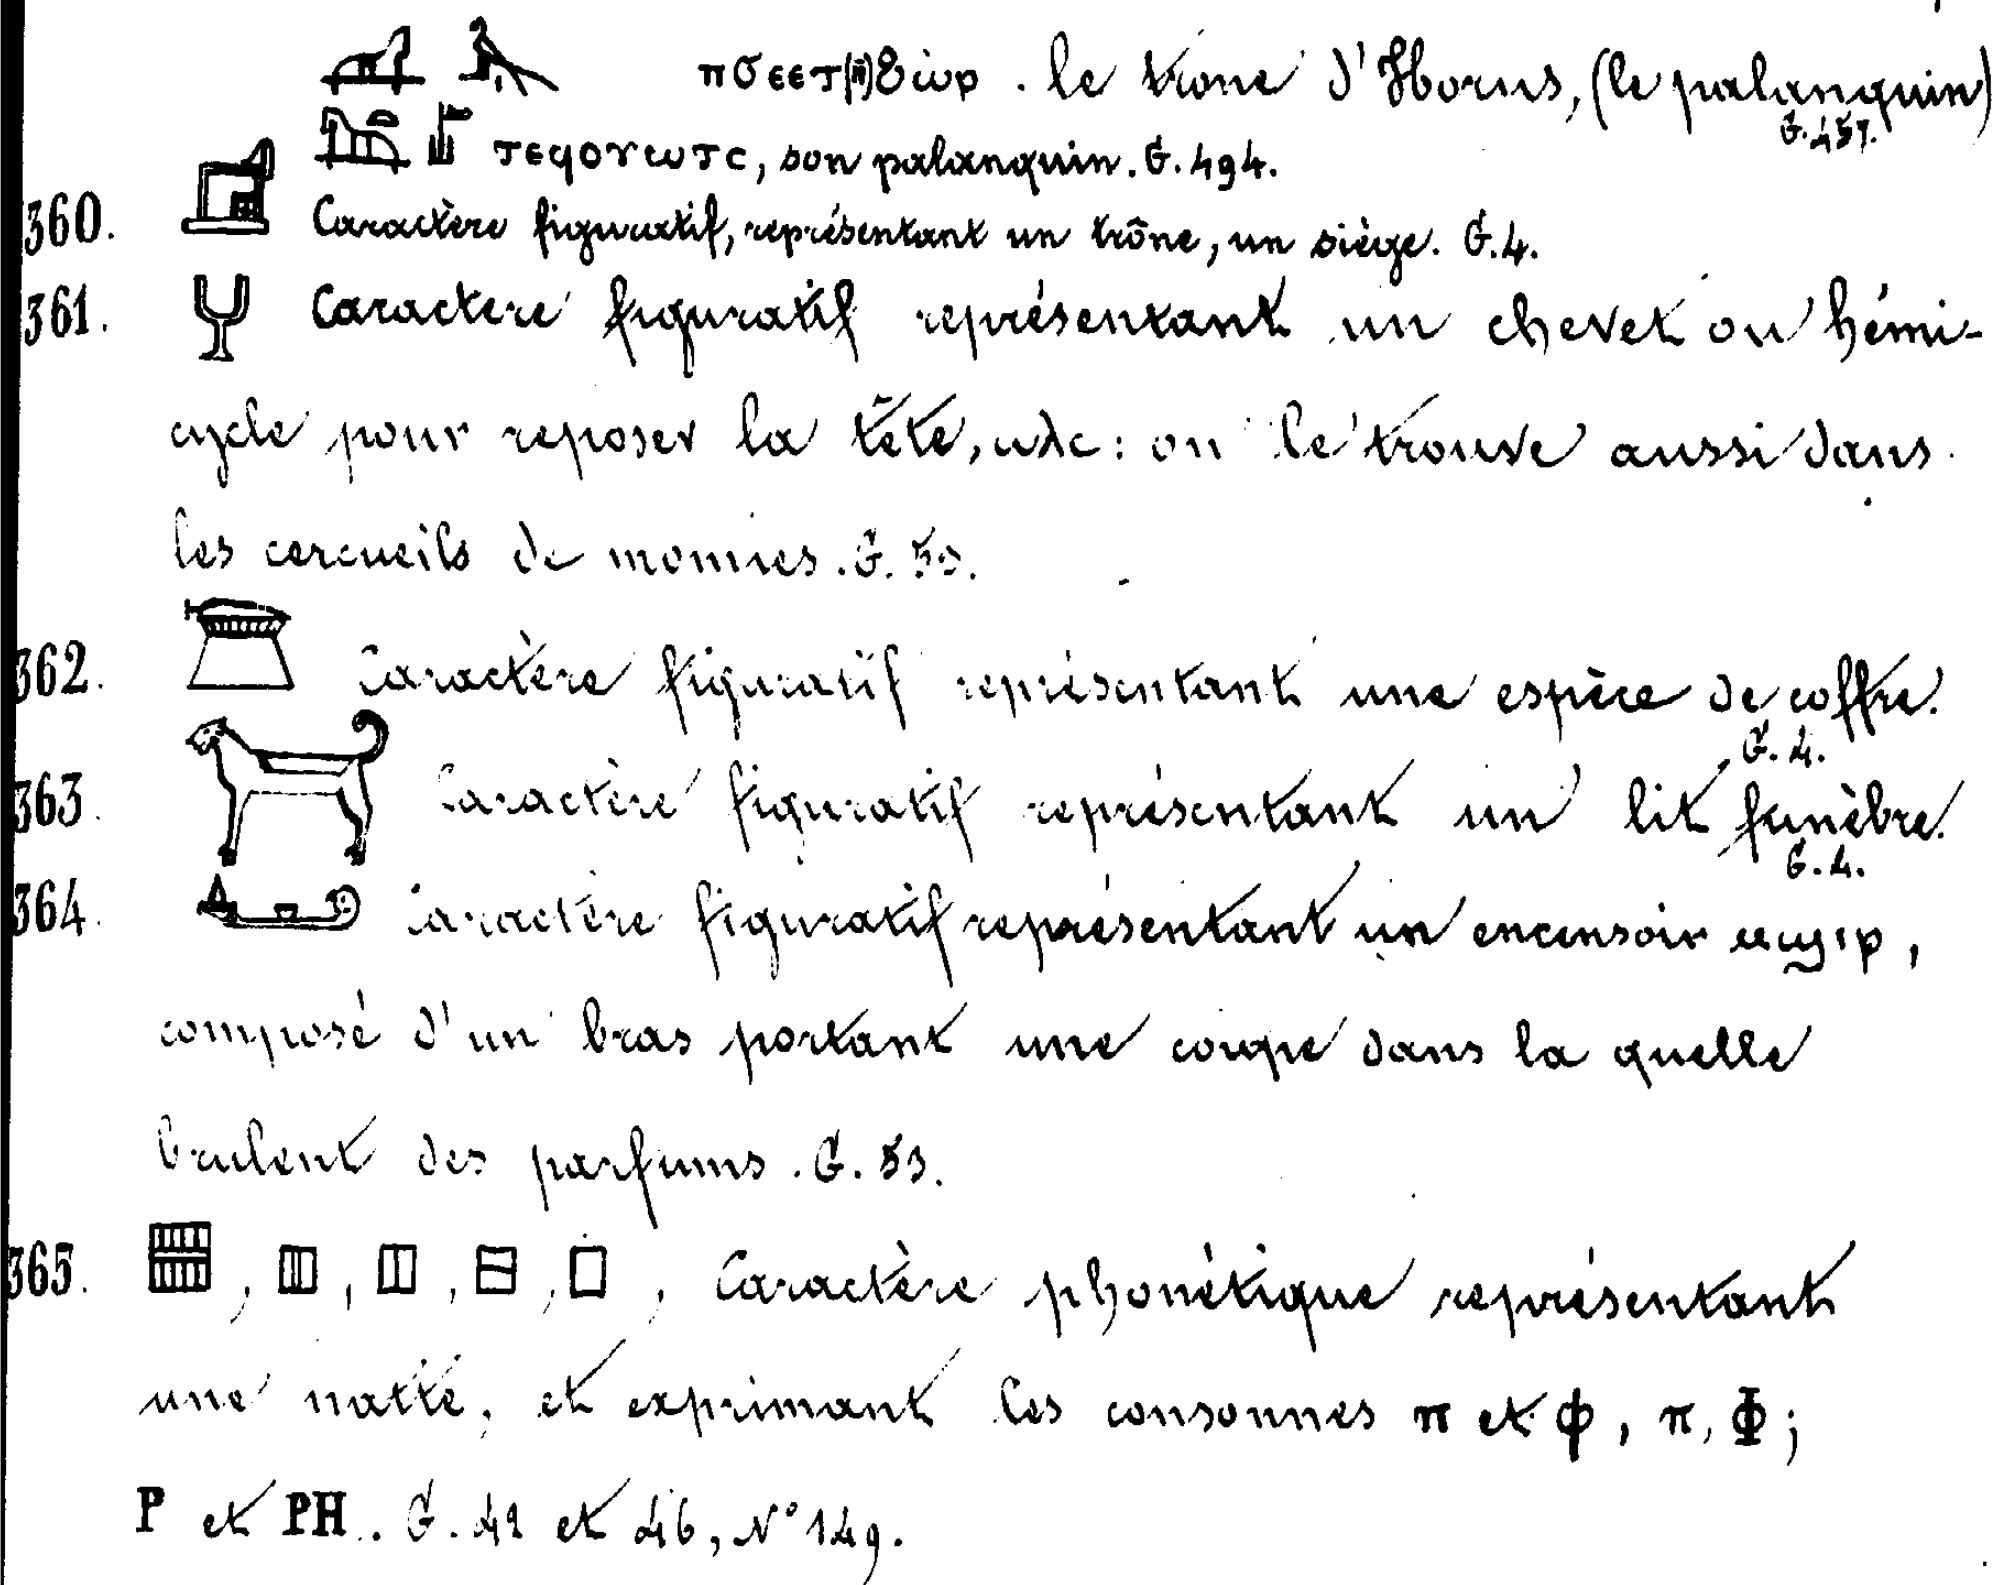 ⲡϭⲉⲉⲧ(ⲛ̄)ϩⲱⲣ . le trone d'Horus, (le palanquin)
G. 457.
ⲧⲉϥⲟⲩⲱⲧⲥ, son palanquin. G. 494.
360. Caractère figuratif, représentant un trône, un siège. G. 4.
361. Caractere figuratif représentant un chevet ou hémi-
cycle pour reposer la tête, : on le trouve aussi dans
les cercueils de momies. G.
362. Caractère figuratif représentant une espèce de coffre.
G. 4.
363. Caractère figuratif représentant un lit funèbre.
G. 4.
364. Caractère figuratif représentant un encensoir ,
composé d'un bras portant une coupe dans la quelle
brulent des parfums. G.
365. , , , , , Caractère phonétique représentant
une natte, et exprimant les consonnes ⲡ et ⲫ, π, Φ;
P et PH.. G. et 46, N° 149.